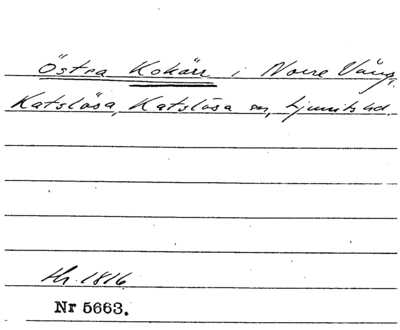 Östra Kokärr i Norre Vång,
Katslösa, Katslösa sn, Ljunits hd.
Hr. 1816
Nr 5663.